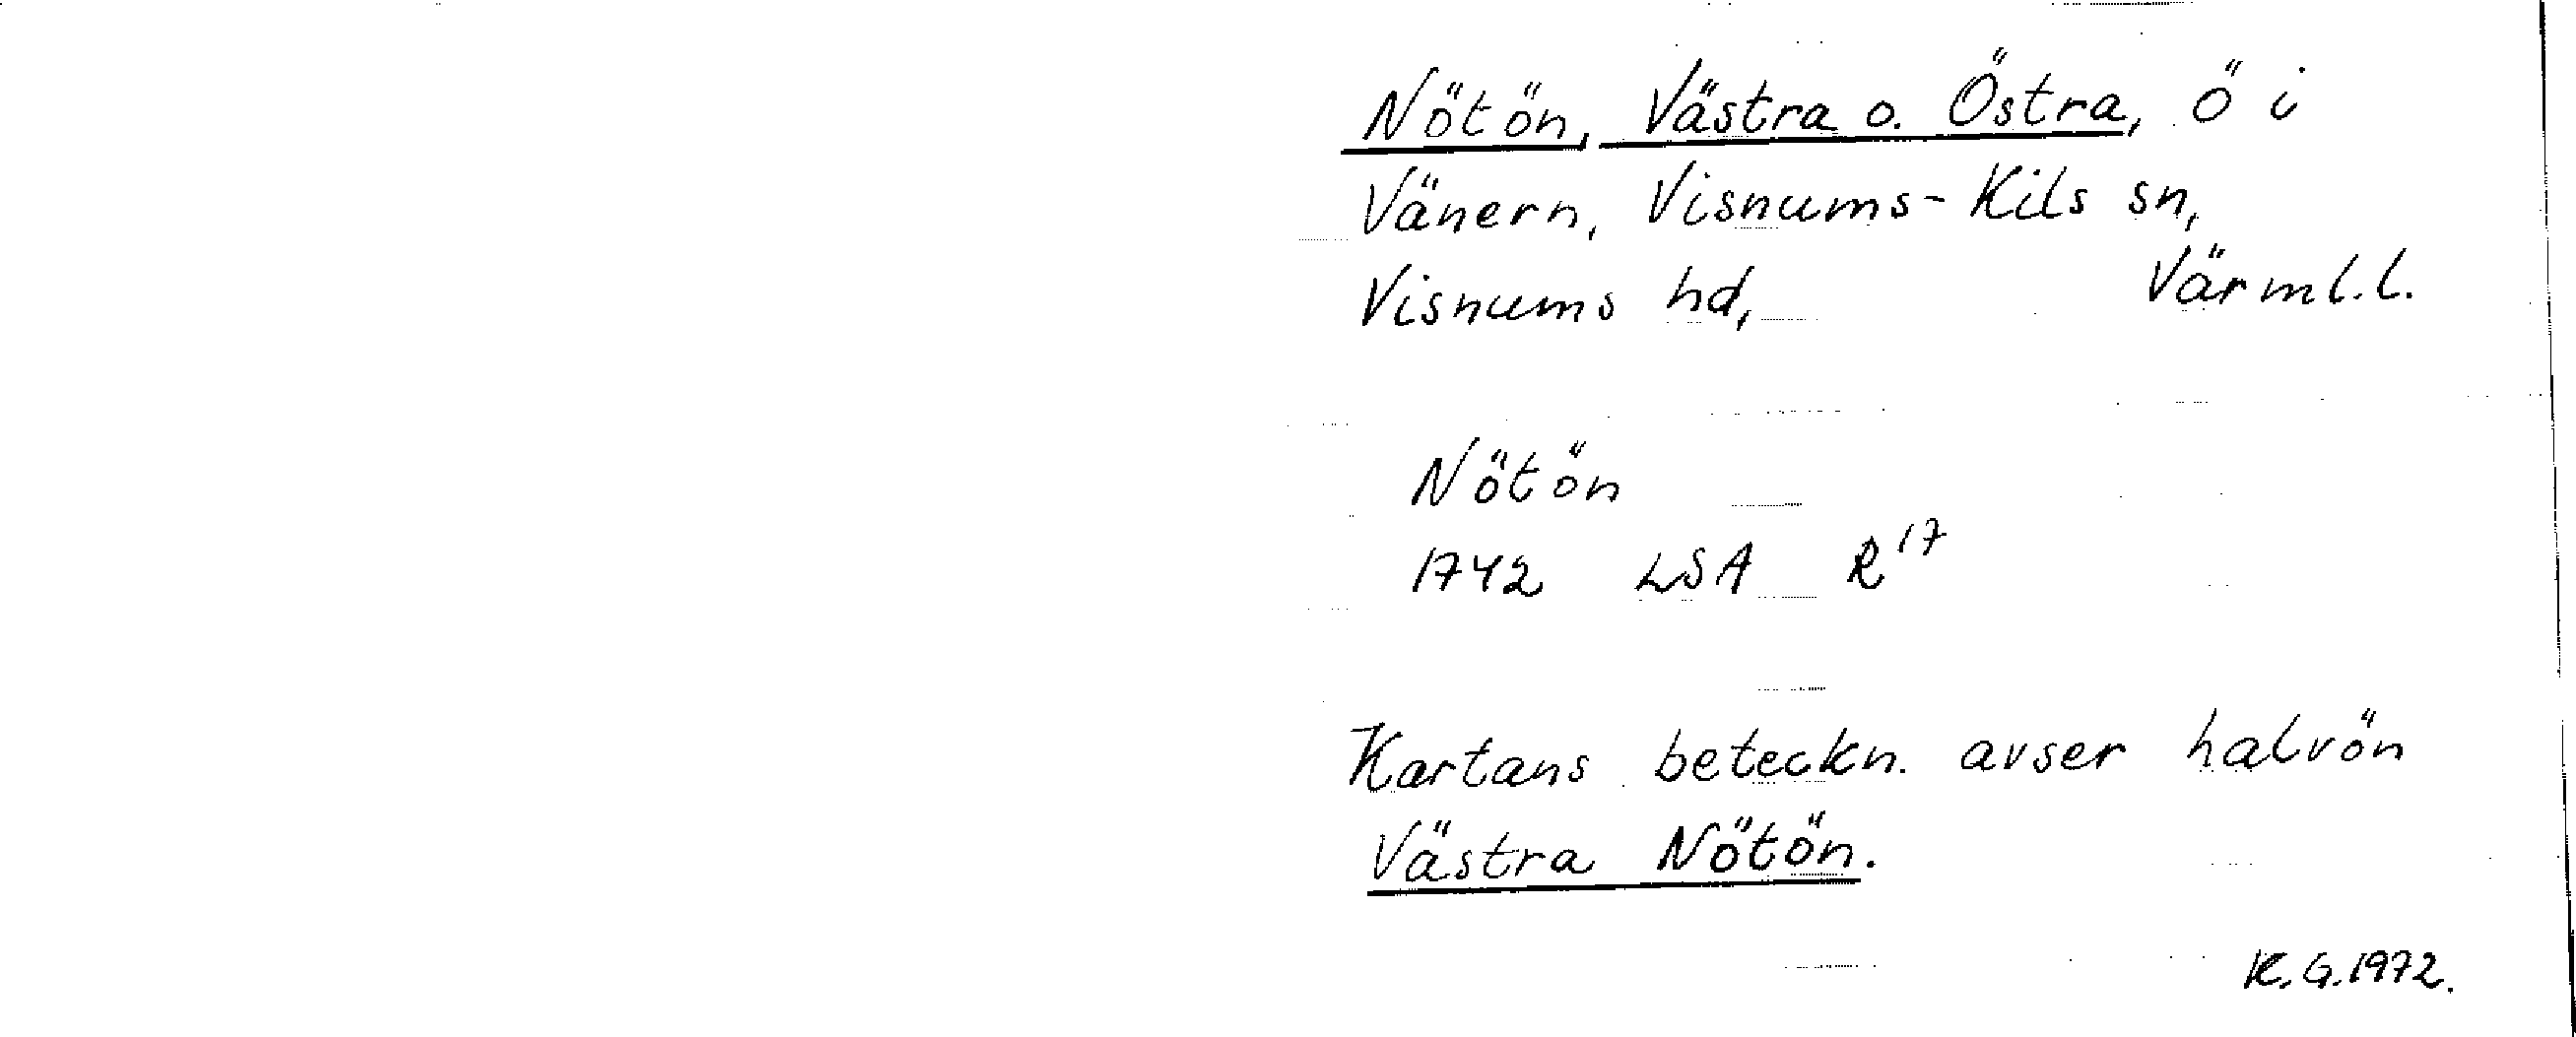 Nötön, Västra o. Östra, ö i
Vänern, Visnums-Kils sn,
Visnums hd, Värml.l.
Nötön
1742 LSA R¹⁷
Kartans beteckn. avser halvön
Västra Nötön.
K.G.1972.